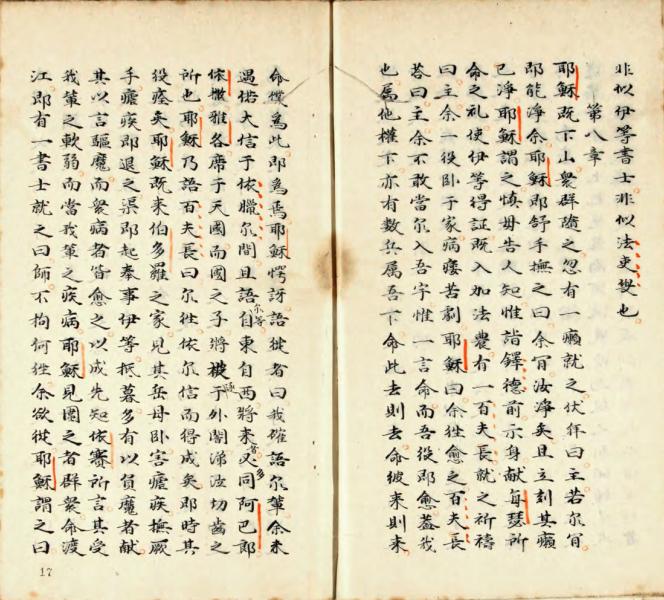 非似伊等書士非似法吏也
第八章
耶穌既下山衆群隨之忽有一癩就之伏拜曰主若尔肎
即能淨余耶穌即舒手撫之曰余肎汝淨矣且立刻其癩
已淨耶穌謂之慎毋告人知惟詣鐸德前示身献每瑟所
命之礼使伊等得証既入加法農有一百夫長就之祈禱
曰主余一役卧于家病痿苦劇耶穌曰余往愈之百夫長
荅曰主余不敢當尔入吾宇惟一言命而吾役即愈蓋我
也属他權下亦有数兵属吾下命此去則去命彼来則来
命僕爲此即爲焉耶穌愕訝語從者曰我確語尔輩余未
遇偌大信于依臘尔間且語尔等自東自西將来者多又同阿巴郎
依撒雅各席于天國而國之子將被逐于外闇涕泣切齒之
所也耶穌乃語百夫長曰尔往依尔信而得成矣即時其
役痊矣耶穌既来伯多羅之家見其岳母卧害瘧疾撫厥
手瘧疾即退之渠即起奉事伊等抵暮多有以負魔者献
其以言驅魔而衆病者皆愈之以成先知依賽所言其受
我輩之軟弱而當我輩之疾病耶穌見圍之者群衆命渡
江即有一書士就之曰師不拘何往余欲從耶穌謂之曰
17